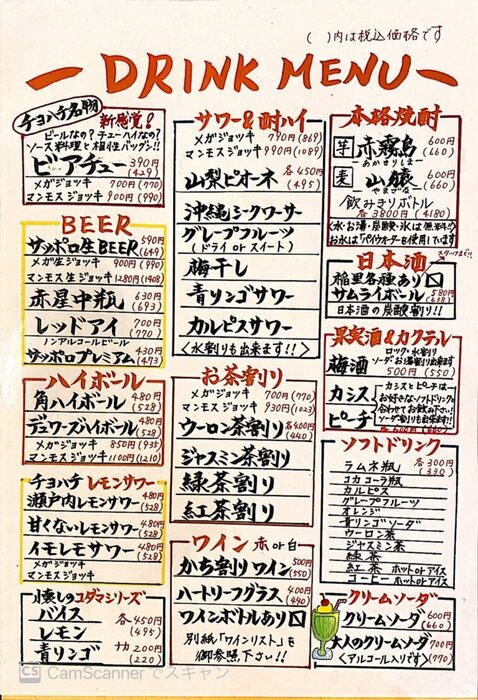 ( )内は税込価格です
DRINK MENU
チョハチ名物
新感覚!
ビールなの?チューハイなの?
ソース料理と相性バツグン!!
ビアチュー 390円 (429)
メガジョッキ 700円 (770)
マンモスジョッキ 900円 (990)
BEER
サッポロ生BEER 590円 (649)
メガ生ジョッキ 900円 (990)
マンモス生ジョッキ 1280円 (1408)
赤星中瓶 630円 (693)
レッドアイ 700円 (770)
ノンアルコールビール
サッポロプレミアム 430円 (473)
ハイボール
角ハイボール 480円 (528)
デュワーズハイボール 480円 (528)
メガジョッキ 850円 (935)
マンモスジョッキ 1100円 (1210)
チョハチレモンサワー
瀬戸内レモンサワー 480円 (528)
甘くないレモンサワー 480円 (528)
イモレモサワー 480円 (528)
メガジョッキ
マンモスジョッキ
懐しのコダマシリーズ
バイス 各450円
レモン (495)
青リンゴ ナカ 200円 (220)
サワー&酎ハイ
メガジョッキ 790円 (869)
マンモスジョッキ 990円 (1089)
山梨ピオーネ 各450円 (495)
沖縄シークワーサー
グレープフルーツ
(ドライ or スイート)
梅干し
青リンゴサワー
カルピスサワー
<水割りも出来ます!!>
お茶割り
メガジョッキ 700円 (770)
マンモスジョッキ 930円 (1023)
ウーロン茶割り 各400円 (440)
ジャスミン茶割り
緑茶割り
紅茶割り
ワイン 赤or白
かち割りワイン 500円 (550)
ハートリーフグラス 400円 (440)
ワインボトルあり
別紙「ワインリスト」を
御参照下さい!!
本格焼酎
芋 赤霧島 600円 (660)
あかきりしま
麦 山猿 600円 (660)
やまざる
飲みきりボトル
各3800円 (4180)
<水・お湯・炭酸・氷は無料!!>
お水は「πウォーター」を使用しています
スタッフまで!!
日本酒
稲里各種あり
サムライボール 580円 (638)
日本酒の炭酸割り!!
果実酒&カクテル
梅酒 ロック・水割り
ソーダ・お湯割り出来ます
500円 (550)
カシス
ピーチ
カシスとピーチは
お好きなソフトドリンクと
合わせてお飲み下さい!
ソーダ割りも出来ます!!
各600円 (660)
ソフトドリンク
ラムネ瓶 各300円 (330)
コカコーラ瓶
カルピス
グレープフルーツ
オレンジ
青リンゴソーダ
ウーロン茶
ジャスミン茶
緑茶
紅茶 ホット or アイス
コーヒー ホット or アイス
クリームソーダ
クリームソーダ 600円 (660)
大人のクリームソーダ 700円
<アルコール入りです> (770)
CS CamScannerでスキャン